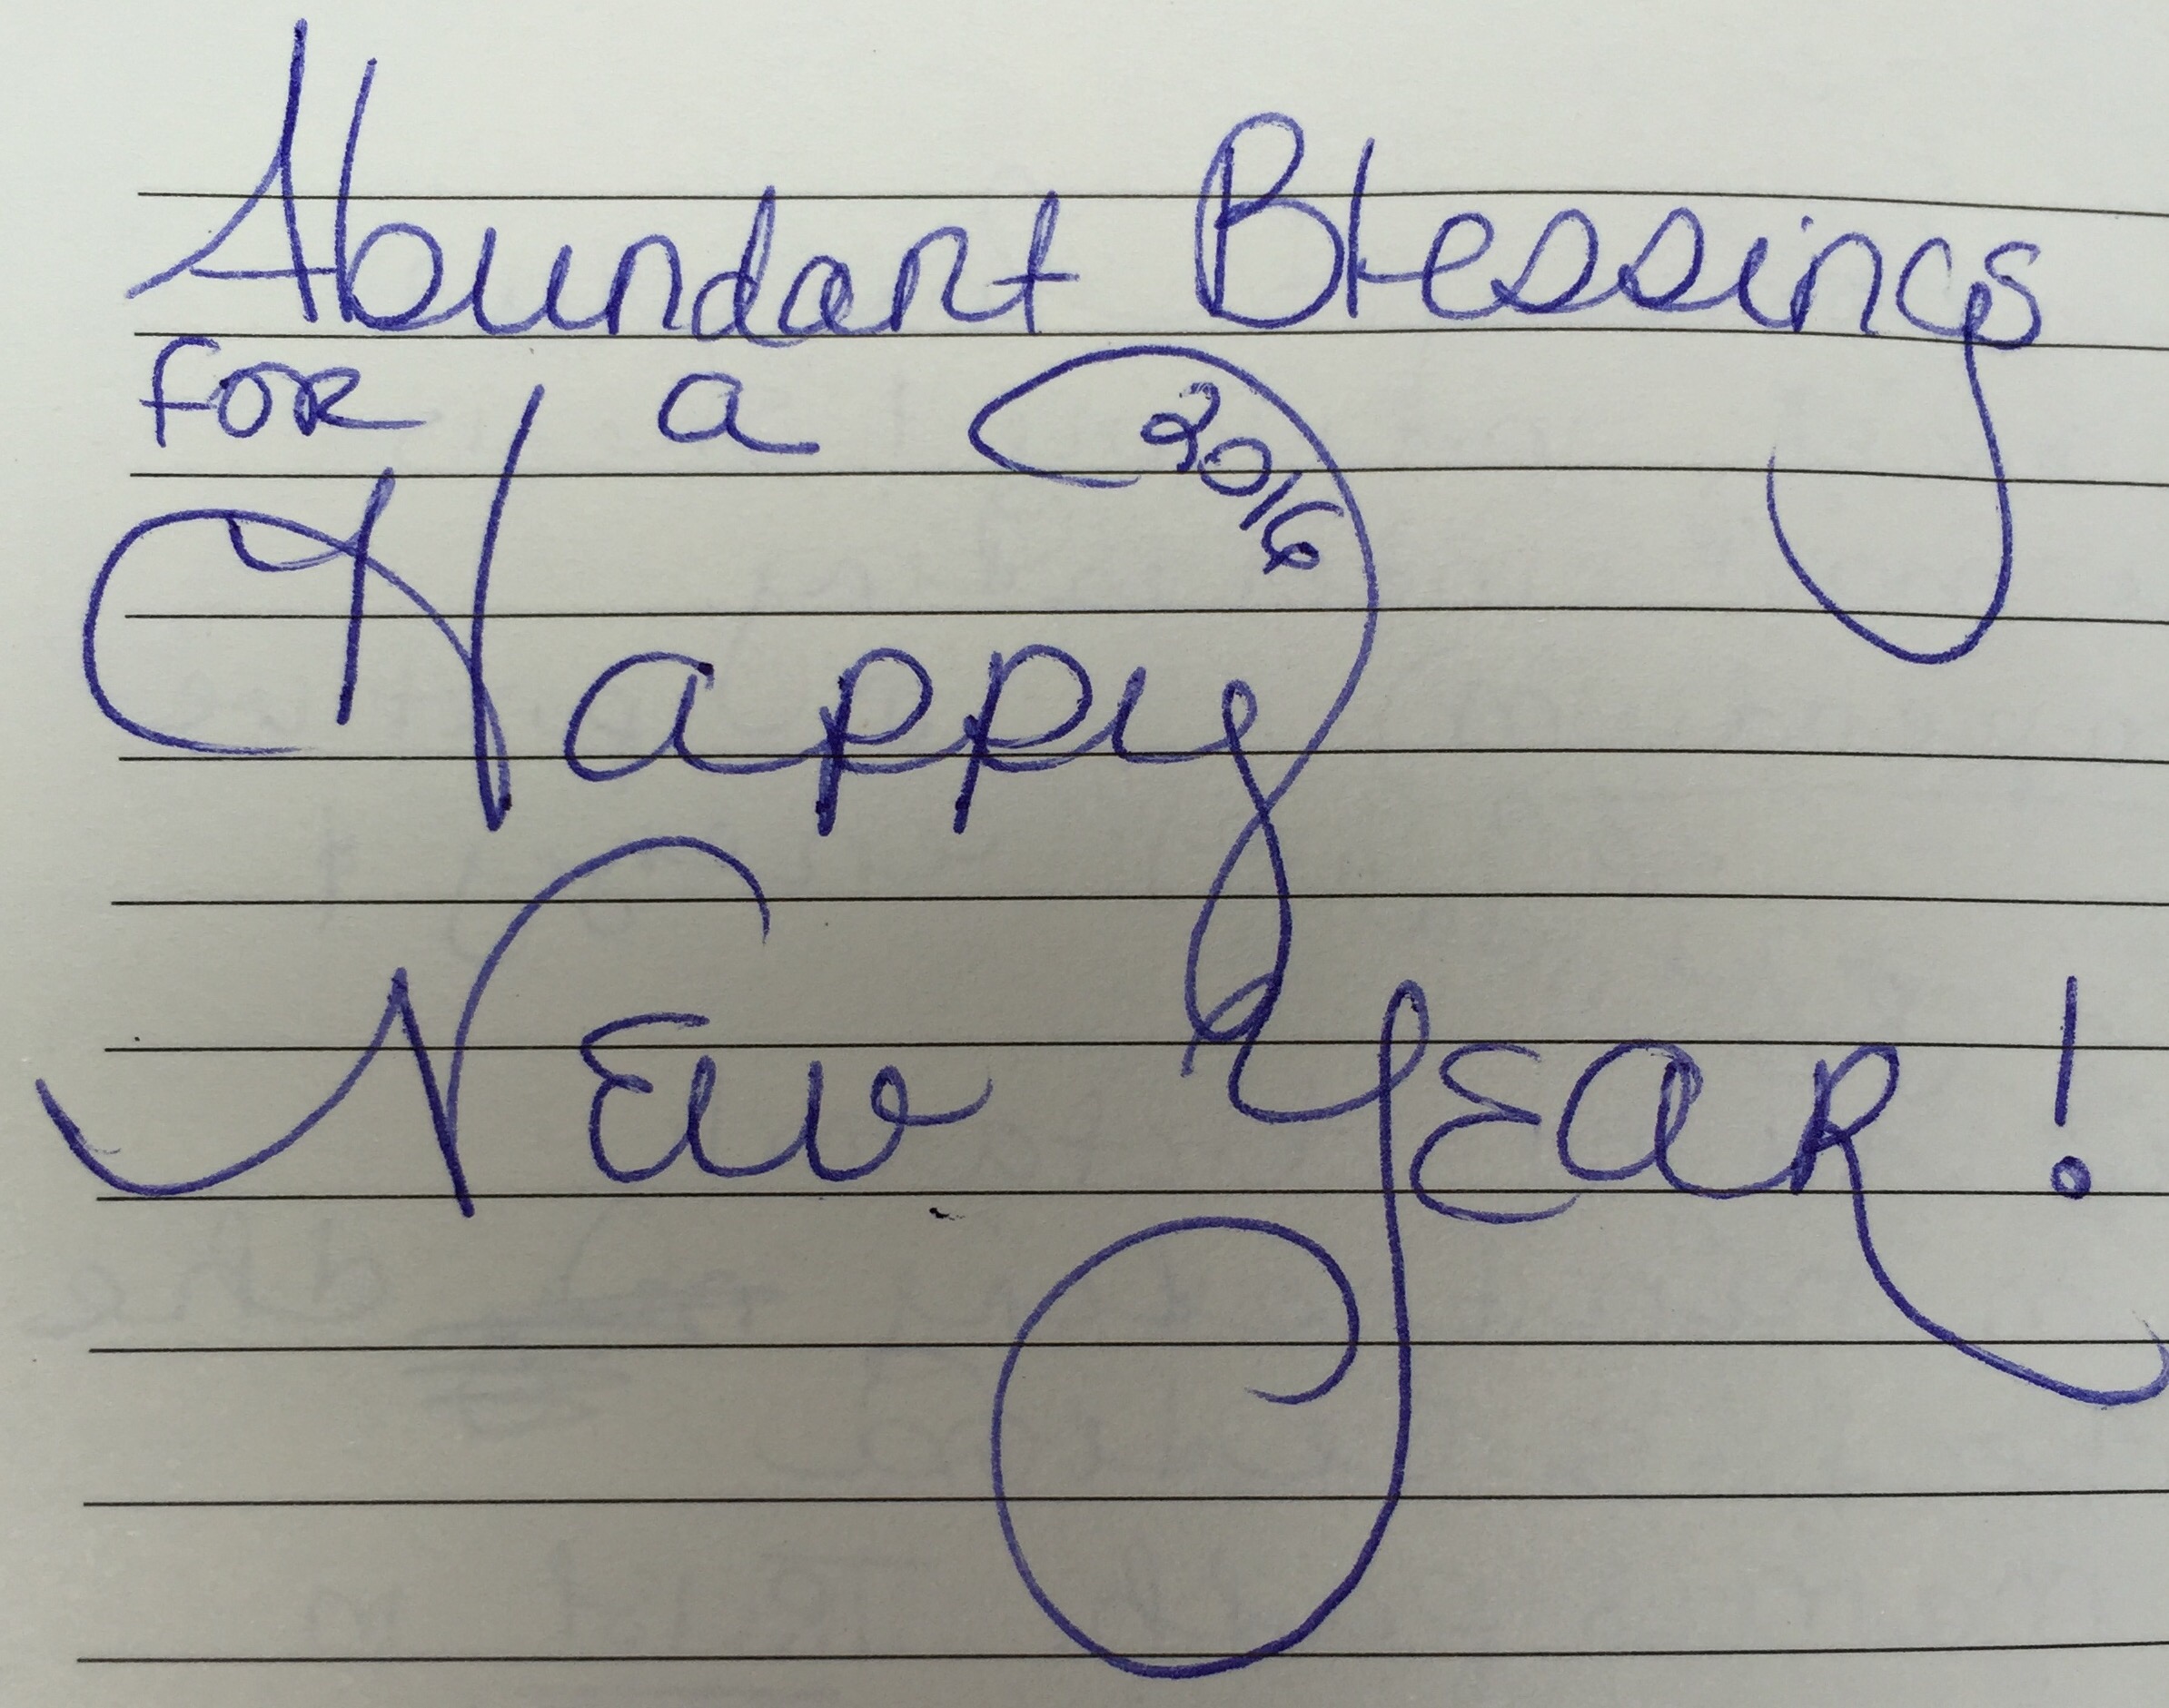 Abundant Blessings
FOR a
2016
Happy
NEW YEAR!